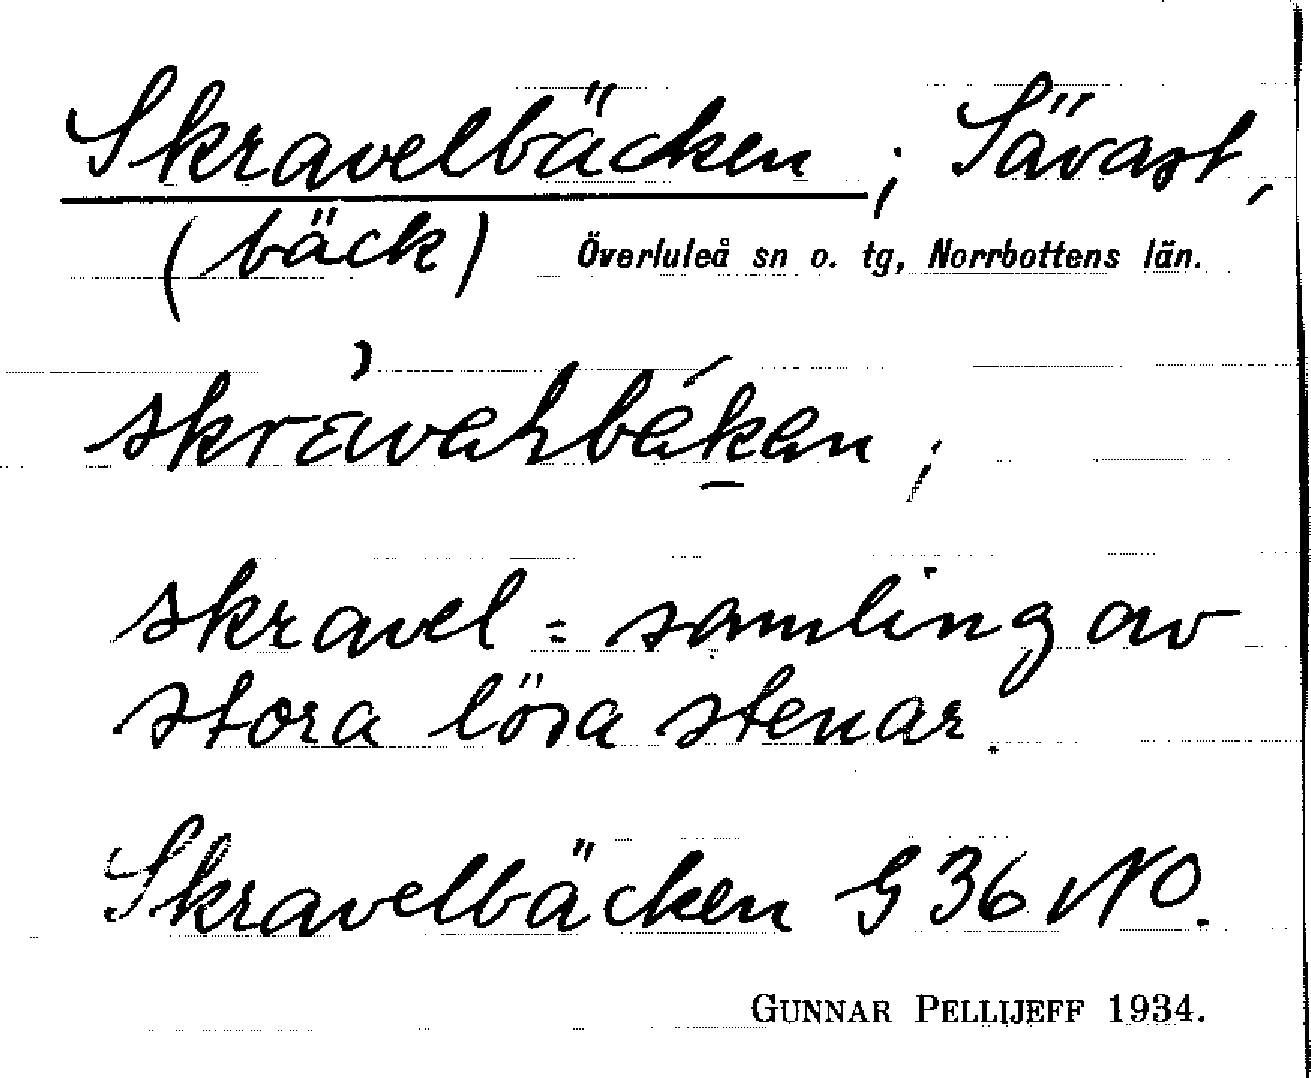 Skravelbäcken; Sävast,
(bäck) Överluleå sn o. tg, Norrbottens län.
skravel = samling av
stora lösa stenar.
Skravelbäcken G 36 NO.
GUNNAR PELLIJEFF 1934.